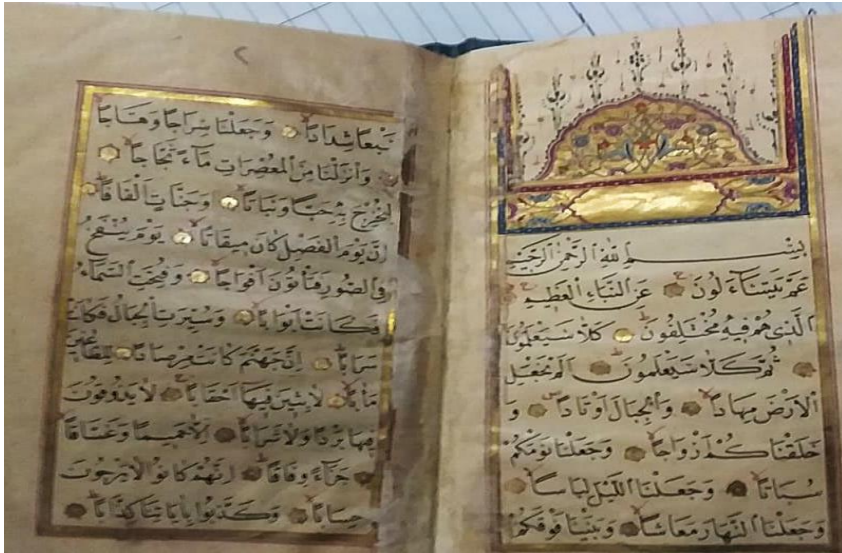 بِسْمِ اللّٰهِ الرَّحْمٰنِ الرَّحِيمِ
عَمَّ يَتَسَآءَلُونَ عَنِ النَّبَاءِ الْعَظِيمِ
اَلَّذِي هُمْ فِيهِ مُخْتَلِفُونَ كَلَّا سَيَعْلَمُونَ
ثُمَّ كَلَّا سَيَعْلَمُونَ اَلَمْ نَجْعَلِ
الْاَرْضَ مِهَادًا وَالْجِبَالَ اَوْتَادًا وَ
خَلَقْنَاكُمْ اَزْوَاجًا وَجَعَلْنَا نَوْمَكُمْ
سُبَاتًا وَجَعَلْنَا الَّيْلَ لِبَاسًا
وَجَعَلْنَا النَّهَارَ مَعَاشًا وَبَنَيْنَا فَوْقَكُمْ
٢
سَبْعًا شِدَادًا وَجَعَلْنَا سِرَاجًا وَهَّاجًا
وَاَنْزَلْنَا مِنَ الْمُعْصِرَاتِ مَآءً ثَجَّاجًا
لِنُخْرِجَ بِهِ حَبًّا وَنَبَاتًا وَجَنَّاتٍ اَلْفَافًا
اِنَّ يَوْمَ الْفَصْلِ كَانَ مِيقَاتًا يَوْمَ يُنْفَخُ
فِي الصُّورِ فَتَأْتُونَ اَفْوَاجًا وَفُتِحَتِ السَّمَآءُ
فَكَانَتْ اَبْوَابًا وَسُيِّرَتِ الْجِبَالُ فَكَانَتْ
سَرَابًا اِنَّ جَهَنَّمَ كَانَتْ مِرْصَادًا لِلطَّاغِينَ
مَاٰبًا لَابِثِينَ فِيهَا اَحْقَابًا لَا يَذُوقُونَ
فِيهَا بَرْدًا وَلَا شَرَابًا اِلَّا حَمِيمًا وَغَسَّاقًا
جَزَآءً وِفَاقًا اِنَّهُمْ كَانُوا لَا يَرْجُونَ
حِسَابًا وَكَذَّبُوا بِاٰيَاتِنَا كِذَّابًا